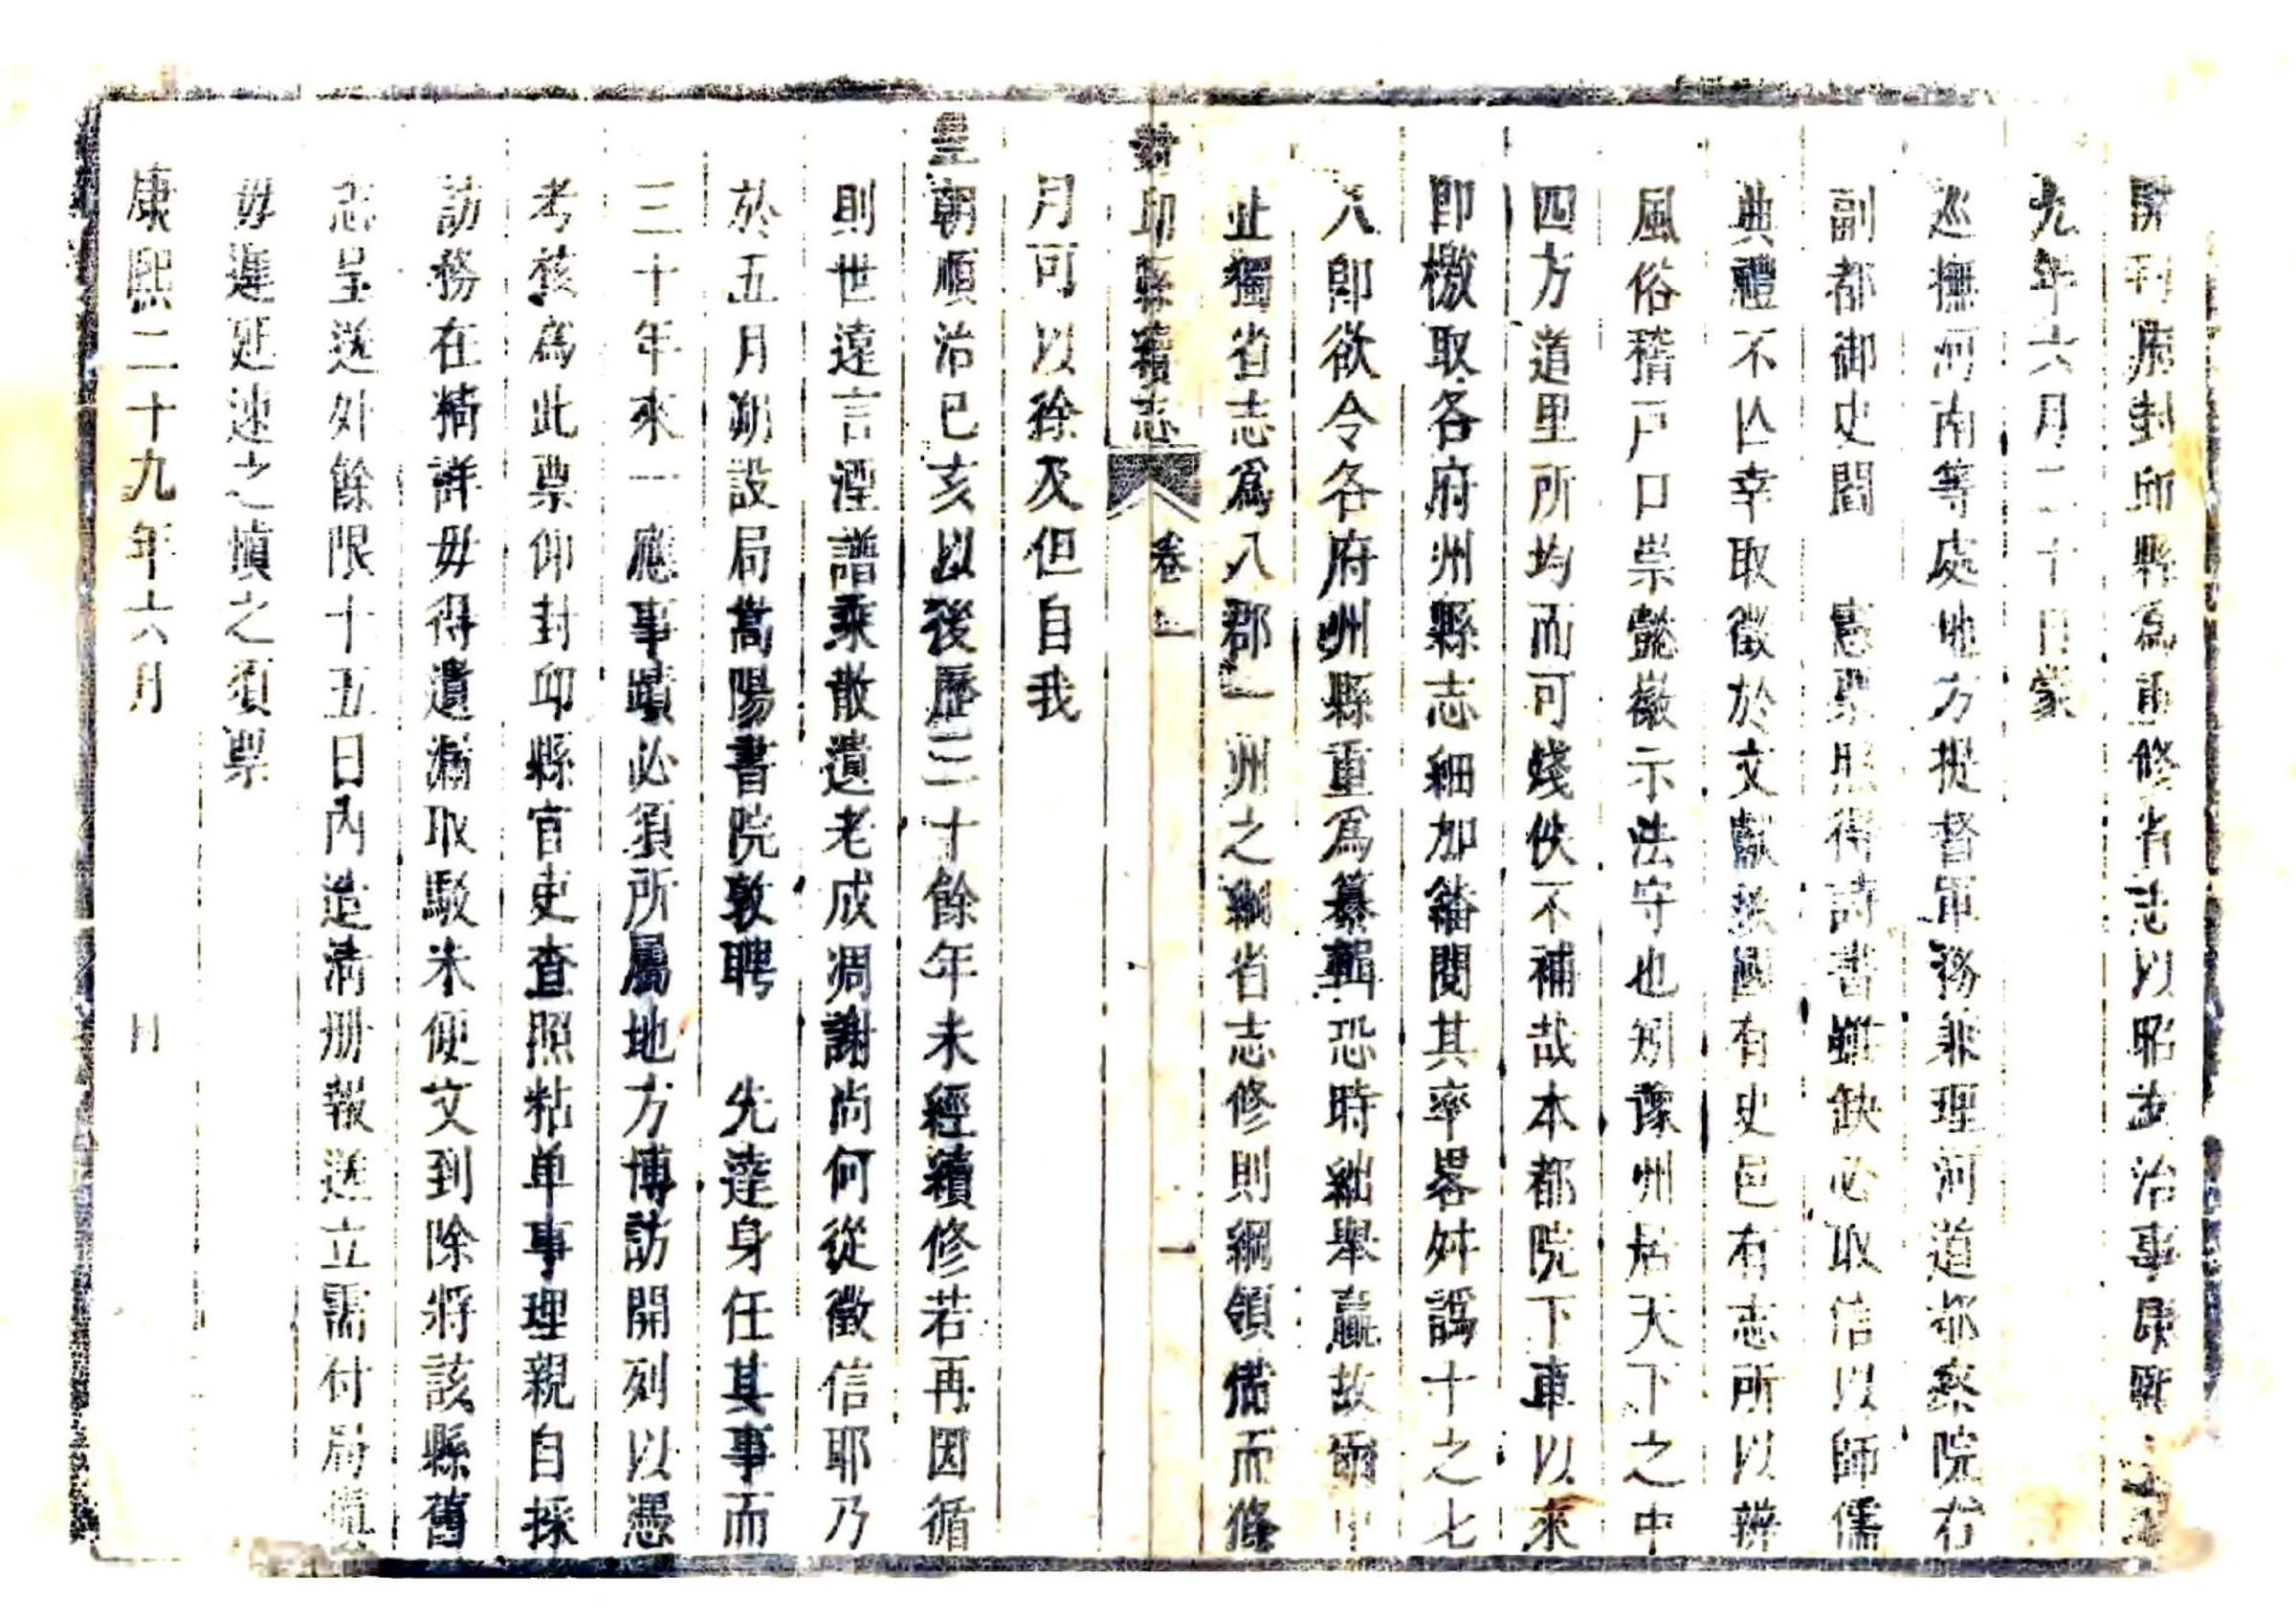 開封府封邱縣爲重修省志以昭盛治事康熙二十
九年六月二十日蒙
巡撫河南等處地方提督軍務兼理河道都察院右
副都御史閻　憲票照得詩書雖缺必取信以師儒
典禮不亾幸取徵於文獻故國有史邑有志所以辨
風俗稽戸口崇懿徽示法守也矧豫州居天下之中
四方道里所均而可殘佚不補哉本都院下車以來
即檄取各府州縣志細加繙閱其率畧舛譌十之七
八卽欲令各府州縣重爲纂輯恐時絀舉贏故爾中
止獨省志爲八郡一州之綱省志修則綱領備而條
封邱縣續志　卷一　一
月可以徐及但自我
皇朝順治已亥以後歷三十餘年未經續修若再因循
則世遠言湮譜乘散遺老成凋謝尚何從徵信耶乃
於五月朔設局嵩陽書院敦聘　先達身任其事而
三十年來一應事蹟必須所屬地方博訪開列以憑
考核爲此票仰封邱縣官吏查照粘单事理親自採
訪務在精詳毋得遺漏取駁未便文到除將該縣舊
志呈送外餘限十五日內造清册報送立需付局慎
毋遲延速之慎之須票
康熙二十九年六月　日